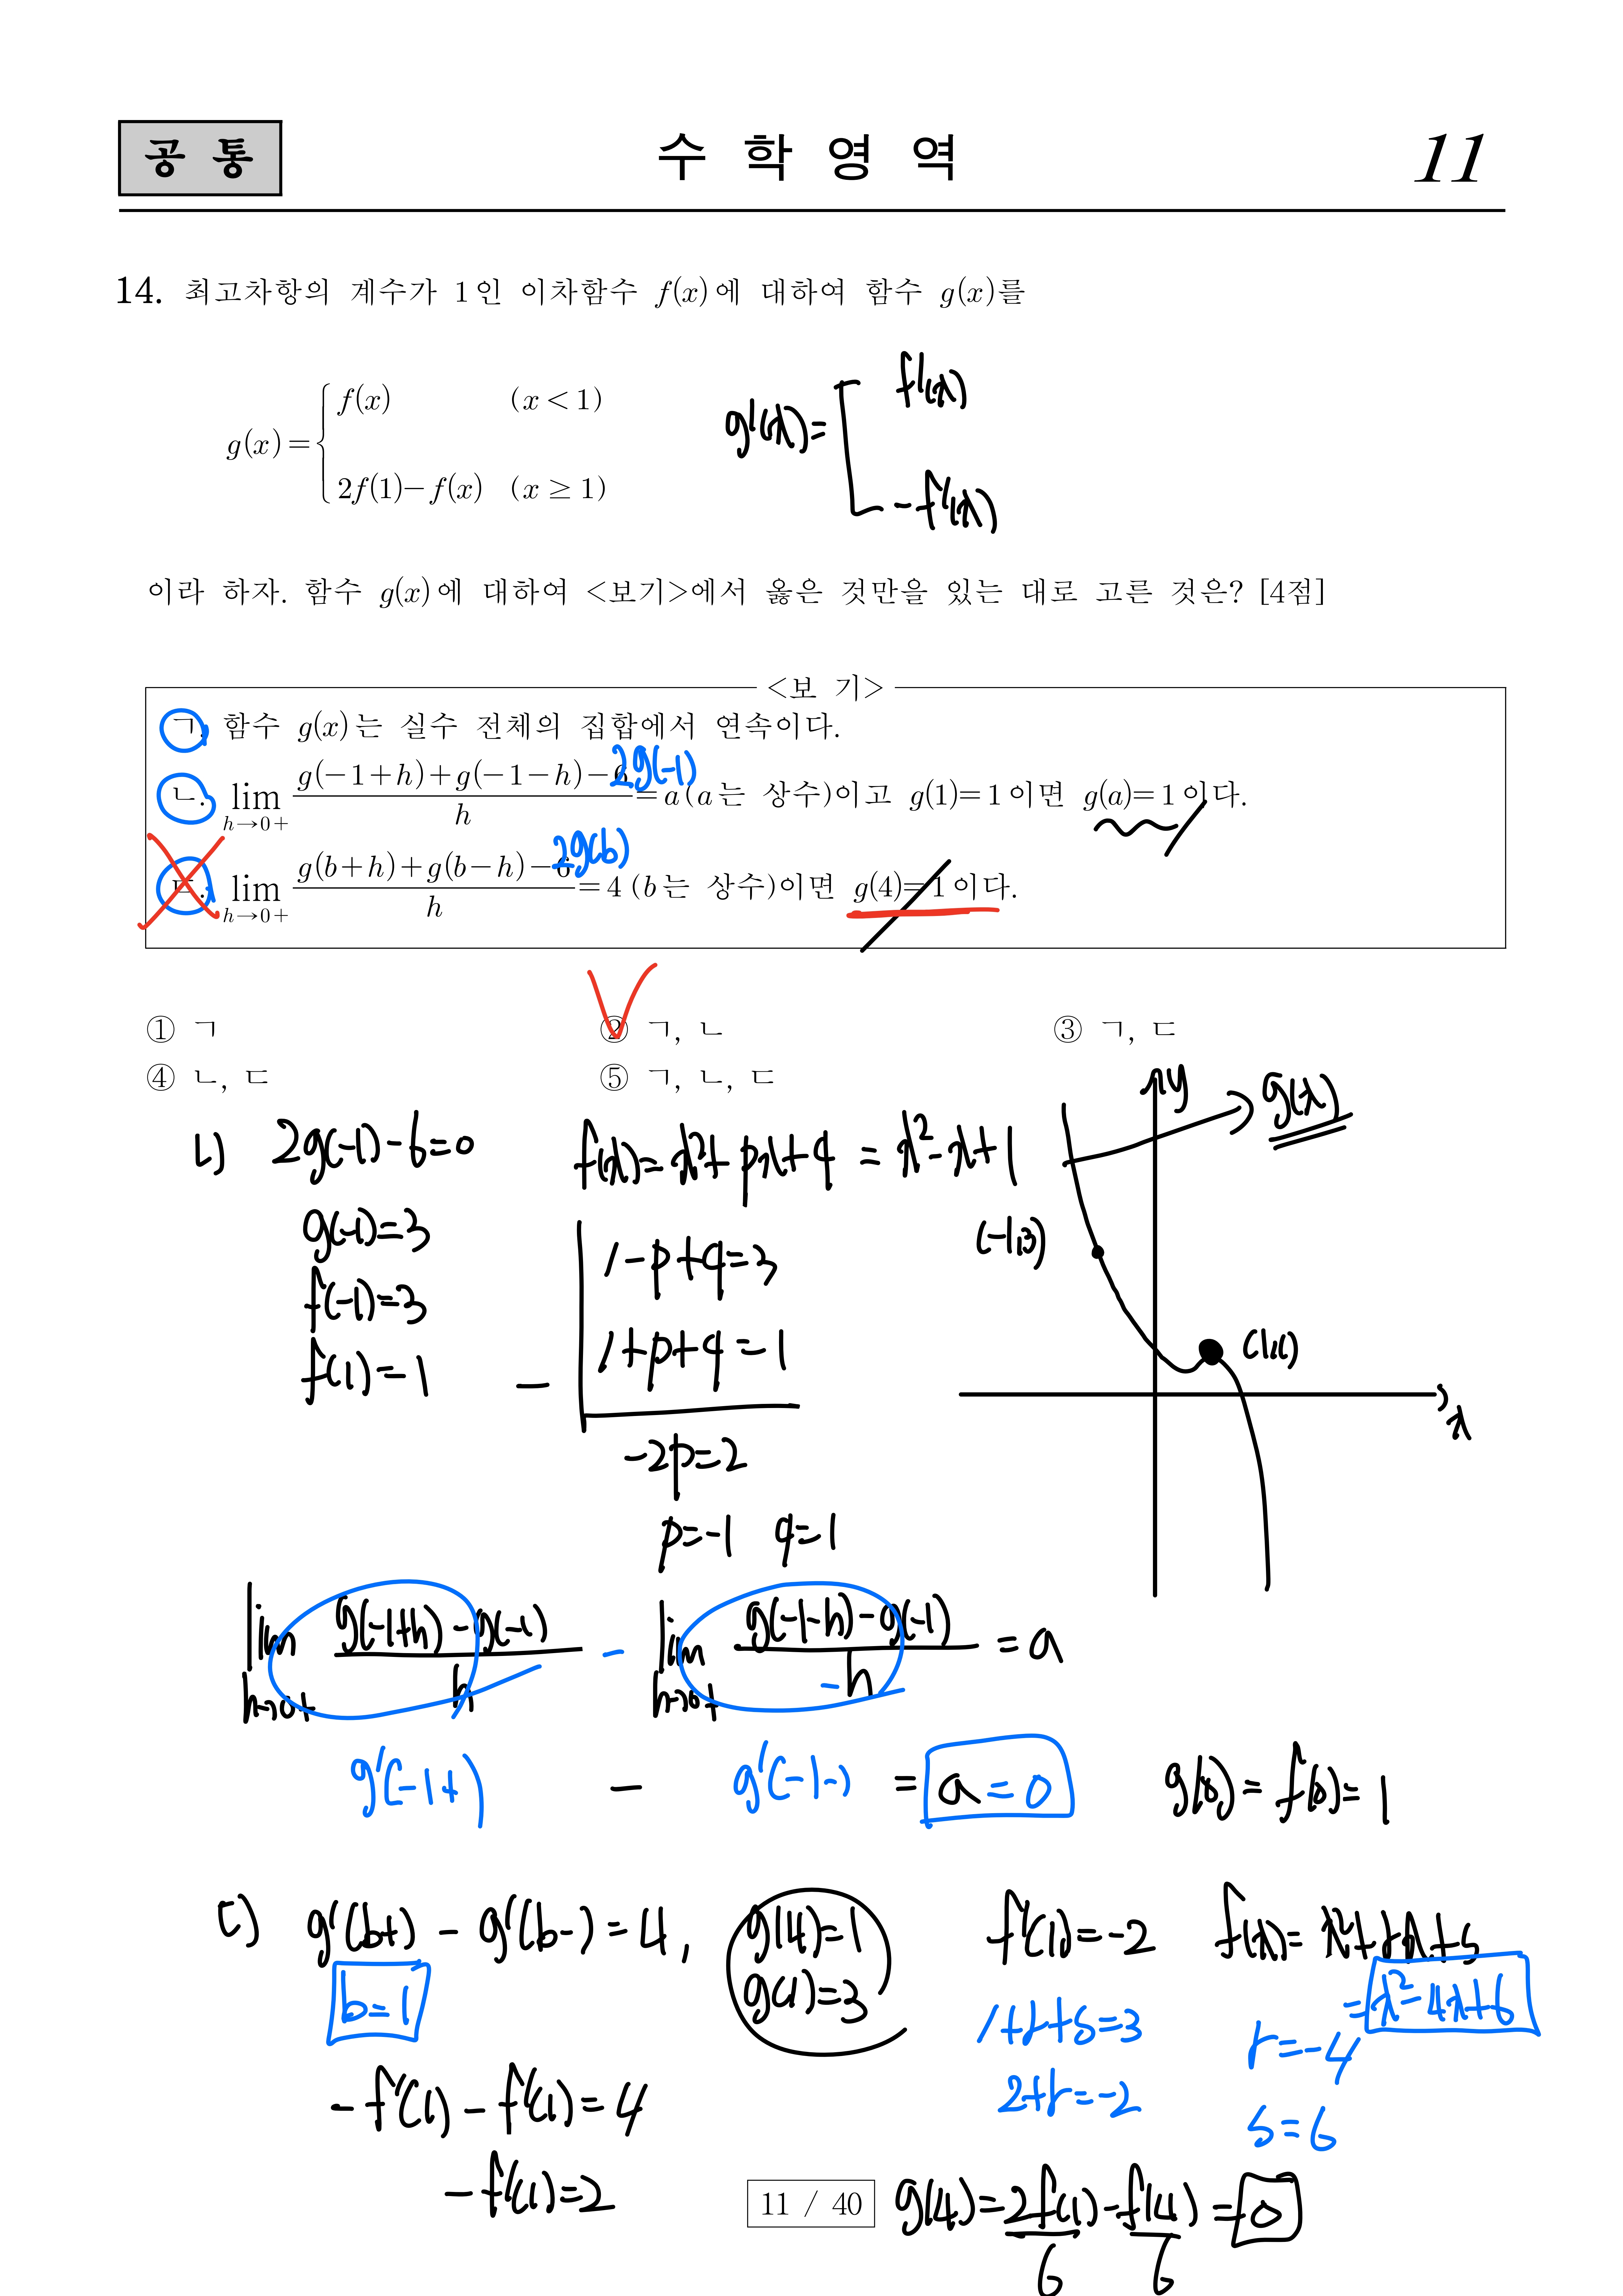 공 통
수 학 영 역
11
14. 최고차항의 계수가 1인 이차함수 f(x)에 대하여 함수 g(x)를
g(x)={ f(x) (x<1)
2f(1)-f(x) (x≥1)
g'(x)= f'(x)
-f'(x)
이라 하자. 함수 g(x)에 대하여 <보기>에서 옳은 것만을 있는 대로 고른 것은? [4점]
<보 기>
ㄱ. 함수 g(x)는 실수 전체의 집합에서 연속이다.
2g(-1)
ㄴ. lim h→0+ (g(-1+h)+g(-1-h)-6)/h = a (a는 상수)이고 g(1)=1이면 g(a)=1이다.
2g(b)
ㄷ. lim h→0+ (g(b+h)+g(b-h)-6)/h = 4 (b는 상수)이면 g(4)=1이다.
① ㄱ ② ㄱ, ㄴ ③ ㄱ, ㄷ
④ ㄴ, ㄷ ⑤ ㄱ, ㄴ, ㄷ
ㄴ) 2g(-1)-6=0
g(-1)=3
f(-1)=3
f(1)=1
f(x)=x²+px+q = x²-x+1
1-p+q=3
- 1+p+q=1
-2p=2
p=-1 q=1
y
g(x)
(-1,3)
(1,1)
x
lim h→0+ (g(-1+h)-g(-1))/h - lim h→0+ (g(-1-h)-g(-1))/-h = a
g'(-1+) - g'(-1-) = a=0
g(0)=f(0)=1
ㄷ) g'(b+)-g'(b-)=4,
b=1
-f'(1)-f'(1)=4
-f'(1)=2
g(4)=1
g(1)=3
f'(1)=-2
1+r+s=3
2+r=-2
f(x)=x²+rx+s
=x²-4x+6
r=-4
s=6
g(4)=2f(1)-f(4)=0
6 6
11 / 40